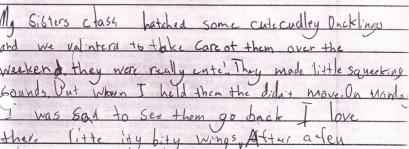 My Sisters class hatched some cute cudley Ducklings
and we valinterd to take care of them over the
weekend. they were really cute. They made little squeeking
Sounds. But when I held them the didn't move. On Monday
I was sad to see them go back I love
there litte ity bity wings. After a few